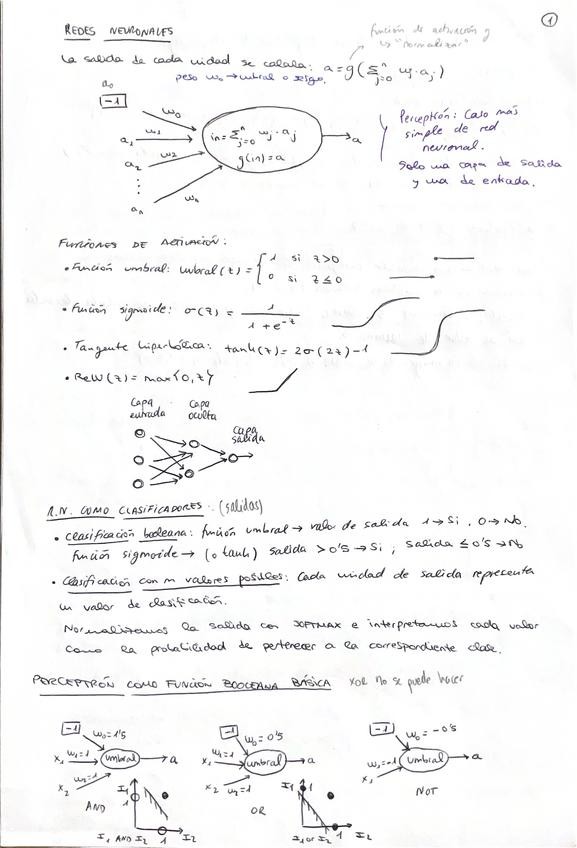 1
REDES NEURONALES
función de activación g
↳ "normalizar"
La salida de cada unidad se calcula: a = g(∑ⁿj=0 wj·aj)
peso w0 → umbral o sesgo.
a0
-1
w0
a1
w1
a2
w2
an
wn
in = ∑ⁿj=0 wj·aj
g(in) = a
a
Perceptrón: Caso más
simple de red
neuronal.
Solo una capa de salida
y una de entrada.
FUNCIONES DE ACTIVACIÓN:
• Función umbral: umbral(z) = { 1 si z>0
0 si z≤0
• Función sigmoide: σ(z) = 1 / (1 + e^-z)
• Tangente hiperbólica: tanh(z) = 2σ(2z) - 1
• ReLU(z) = max{0, z}
Capa entrada
Capa oculta
Capa salida
R.N. COMO CLASIFICADORES. (salidas)
• Clasificación booleana: función umbral → valor de salida 1 → Si, 0 → No.
función sigmoide → (o tanh) salida > 0'5 → Si; salida ≤ 0'5 → No
• Clasificación con m valores posibles: Cada unidad de salida representa
un valor de clasificación.
Normalizamos la salida con SOFTMAX e interpretamos cada valor
como la probabilidad de pertenecer a la correspondiente clase.
PERCEPTRÓN COMO FUNCIÓN BOOLEANA BÁSICA XOR no se puede hacer
-1 w0=1'5
x1 w1=1 umbral → a
x2 w2=1
AND
I1
1
1
I1 AND I2 I2
-1 w0=0'5
x1 w1=1 umbral → a
x2 w2=1
OR
I1 1
1
I1 or I2 I2
-1 w0=-0'5
x1 w1=-1 umbral → a
NOT